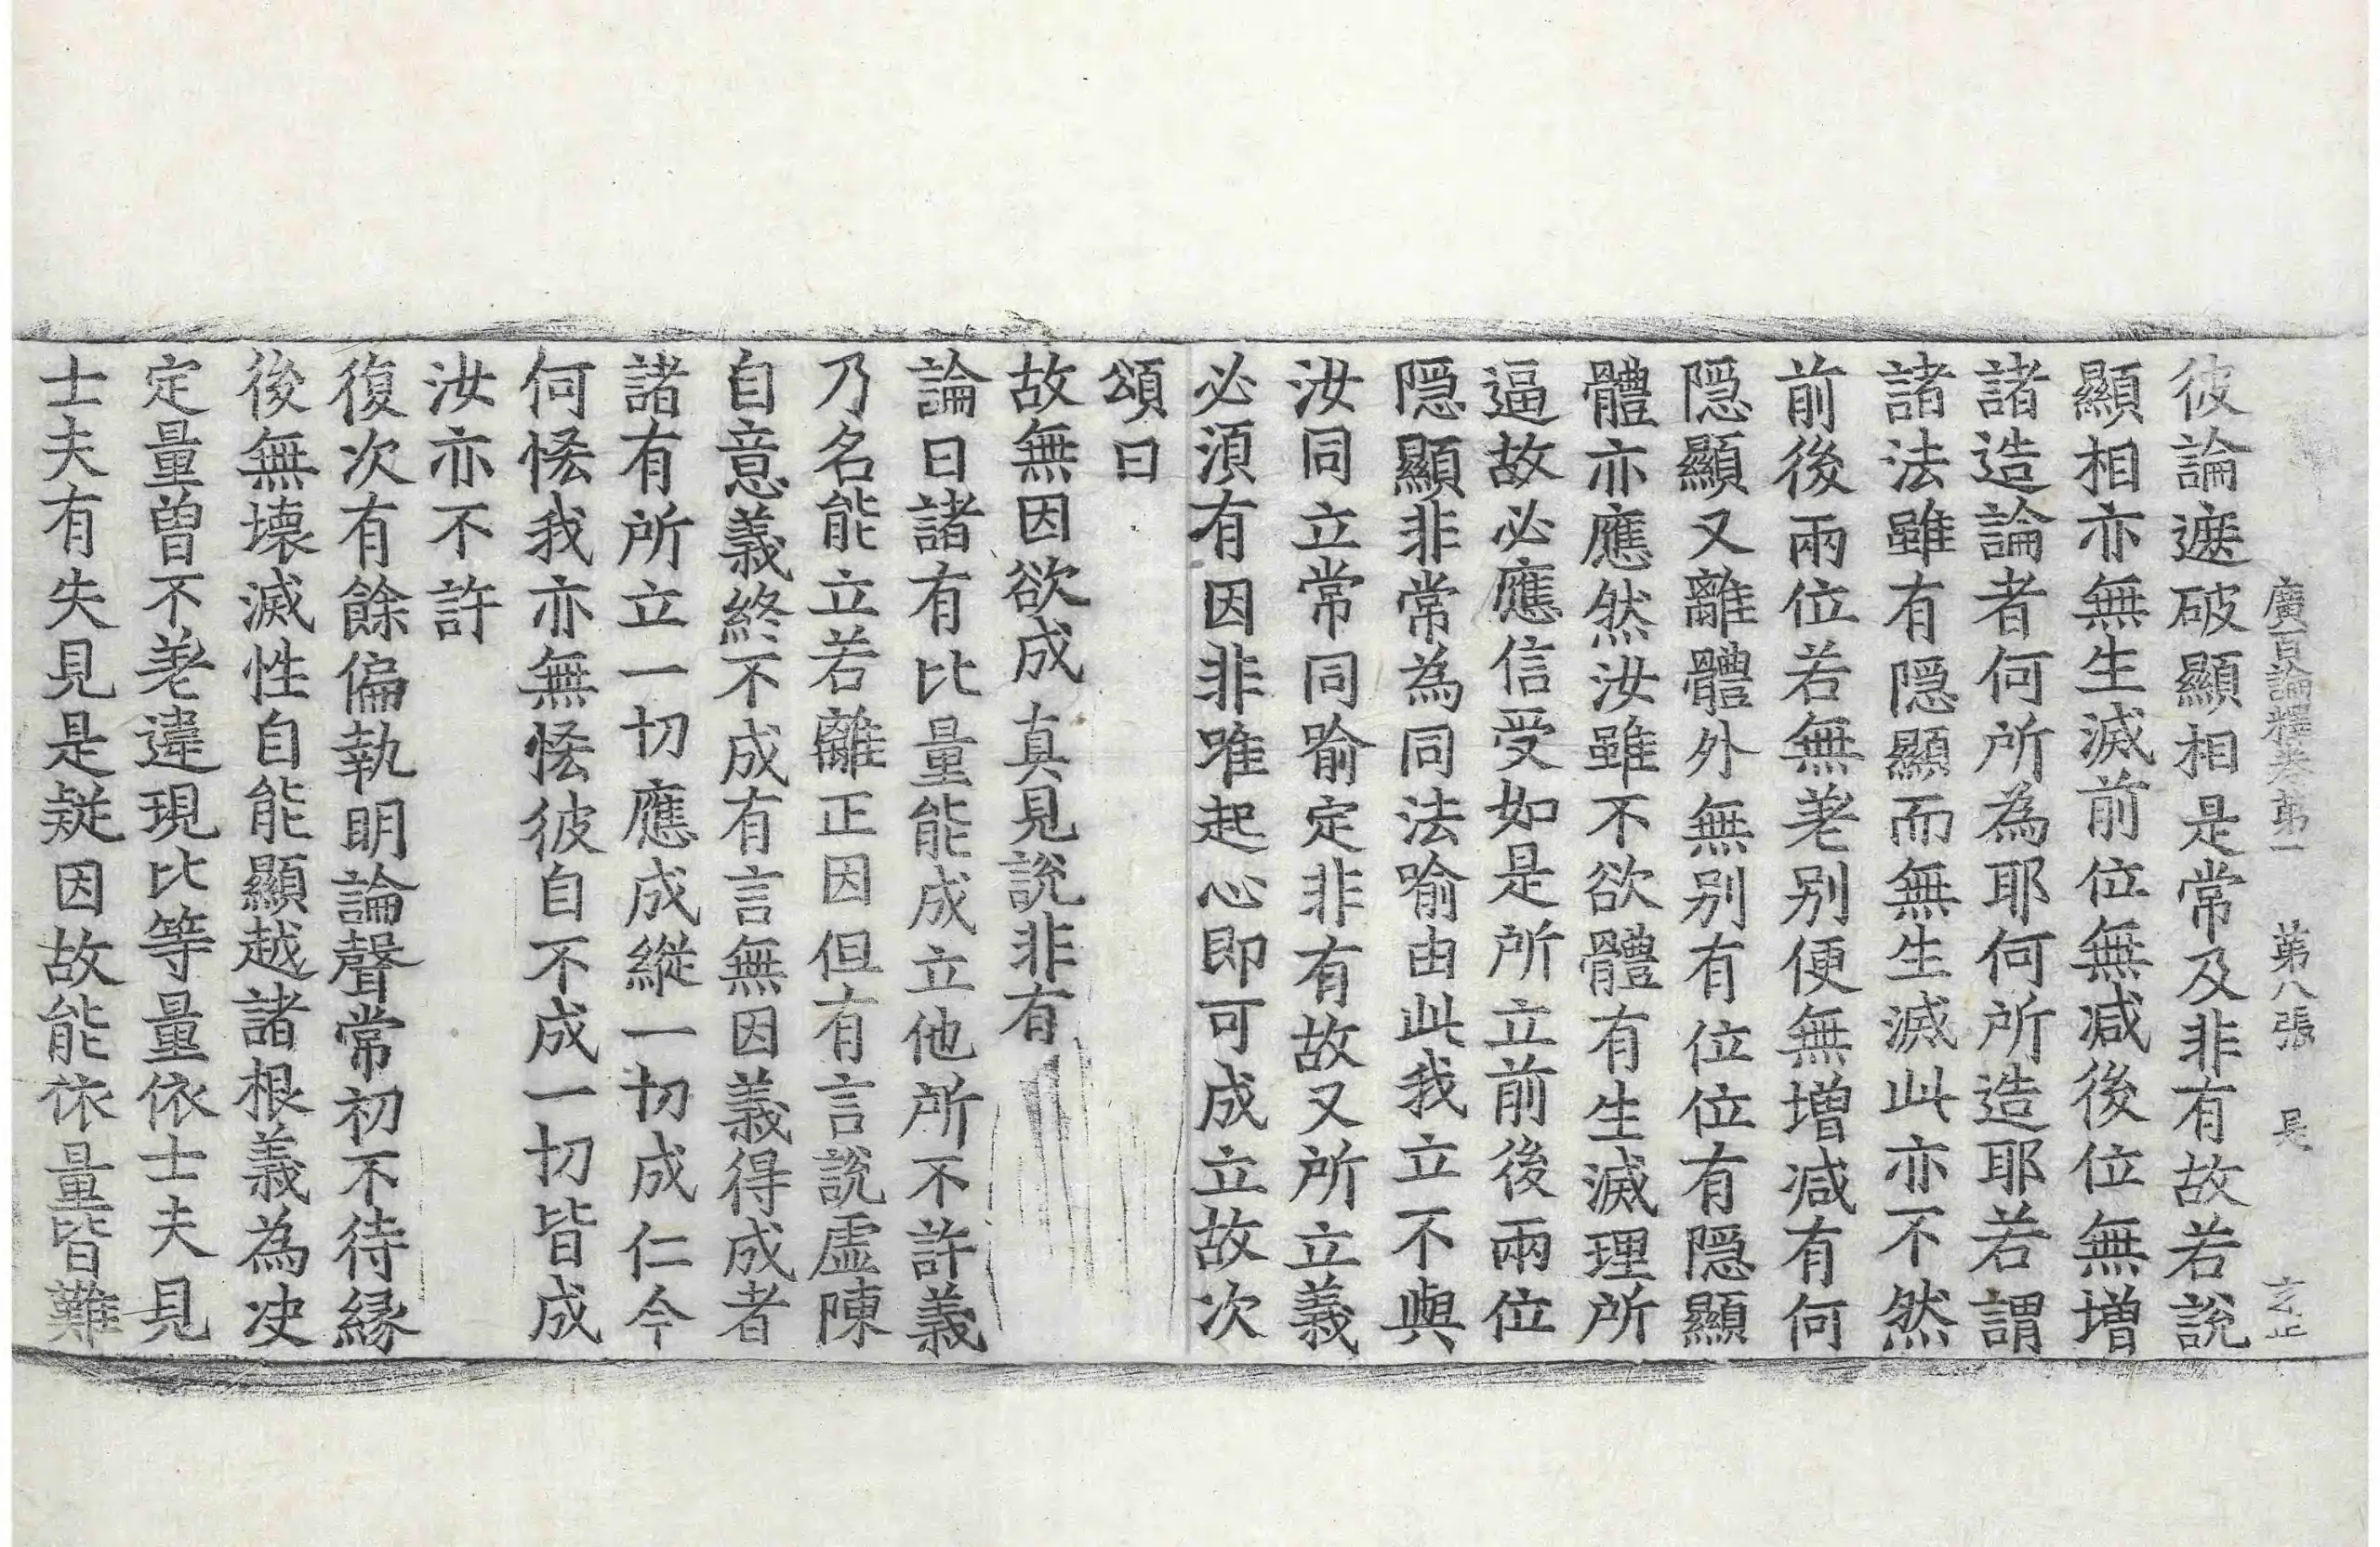 廣百論釋卷第一 第八張 是 玄止
彼論遮破顯相是常及非有故若說
顯相亦無生滅前位無减後位無增
諸造論者何所為耶何所造耶若謂
諸法雖有隱顯而無生滅此亦不然
前後兩位若無差别便無增减有何
隱顯又離體外無别有位位有隱顯
體亦應然汝雖不欲體有生滅理所
逼故必應信受如是所立前後兩位
隱顯非常為同法喻由此我立不與
汝同立常同喻定非有故又所立義
必須有因非唯起心即可成立故次
頌曰
故無因欲成 真見說非有
論曰諸有比量能成立他所不許義
乃名能立若離正因但有言說虛陳
自意義終不成有言無因義得成者
諸有所立一切應成縱一切成仁今
何恡我亦無恡彼自不成一切皆成
汝亦不許
復次有餘偏執明論聲常初不待緣
後無壞滅性自能顯越諸根義為決
定量曾不差違現比等量依士夫見
士夫有失見是疑因故能依量皆難